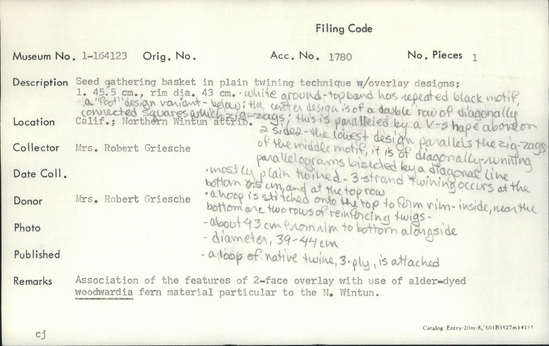 Filing Code
Museum No. 1-164123 Orig. No. Acc. No. 1780 No. Pieces 1
Description Seed gathering basket in plain twining technique w/overlay designs;
l. 45.5 cm., rim dia. 43 cm. · white around - topband has repeated black motif,
a "foot" design variant - below; the center design is of a double row of diagonally
connected squares which zig-zags; this is paralleled by a V-shape above on
Location Calif.; Northern Wintun attrib.
2 sides - the lowest design parallels the zig-zags
Collector Mrs. Robert Griesche
of the middle motif, it is of diagonally-running
parallelograms bisected by a diagonal line
Date Coll.
· mostly plain twined - 3 strand twining occurs at the
bottom and at the top row
Donor Mrs. Robert Griesche
· a hoop is stitched onto the top to form rim - inside, near the
bottom are two rows of reinforcing twigs -
Photo
- about 43 cm from rim to bottom alongside
- diameter, 39-44 cm
Published
- a loop of native twine, 3-ply, is attached
Remarks Association of the features of 2-face overlay with use of alder-dyed
woodwardia fern material particular to the N. Wintun.
cj
Catalog Entry-20m-8,'60(B1927s4)